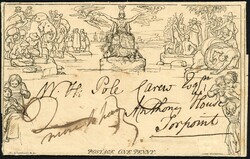 W. H. Pole Carew Esqr
Anthony House
Torpoint
POSTAGE ONE PENNY.